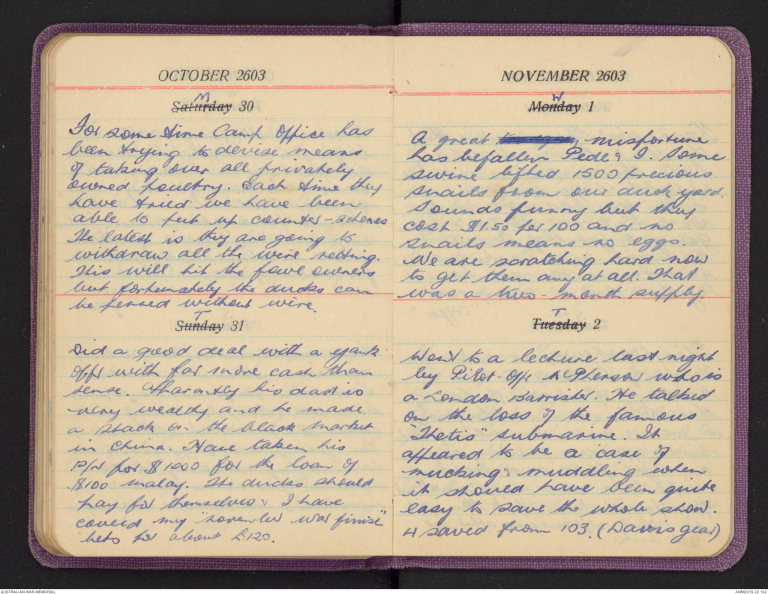 OCTOBER 2603
M
Saturday 30
For some time Camp Office has
been trying to devise means
of taking over all privately
owned poultry. Each time they
have tried we have been
able to put up counter-schemes
The latest is they are going to
withdraw all the wire netting.
This will hit the fowl owners
but fortunately the ducks can
be fensed without wire.
T
Sunday 31
Did a good deal with a yank
Offr with far more cash than
sense. Apparantly his dad is
very wealthy and he made
a stack on the black market
in China. Have taken his
P/N for $1000 for the loan of
$100 malay. The ducks should
pay for themselves & I have
covered my "war finish"
bets for about £120.
NOVEMBER 2603
W
Monday 1
A great misfortune
has befallen Pede & I. Some
swine lifted 1500 precious
snails from our duck yard.
Sounds funny but they
cost $1.50 for 100 and no
snails means no eggs.
We are scratching hard now
to get them any at all. That
was a two-month supply.
T
Tuesday 2
Went to a lecture last night
by Pilot-Offr McPherson who is
a London Barrister. He talked
on the loss of the famous
"Thetis" submarine. It
appeared to be a case of
mucking & muddling when
it should have been quite
easy to save the whole show.
4 saved from 103. (Davis gear)
AUSTRALIAN WAR MEMORIAL